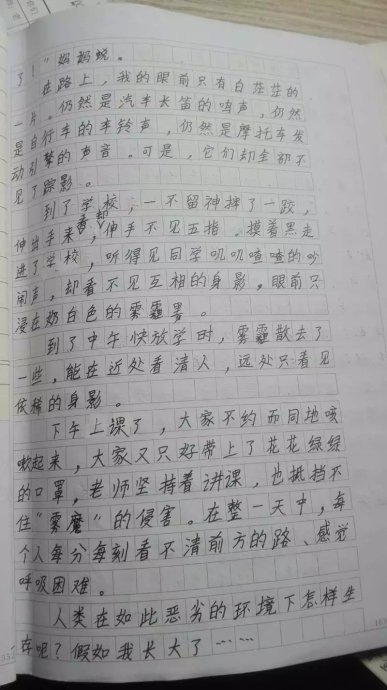 了！"妈妈说。
在路上，我的眼前只有白茫茫的
一片。仍然是汽车长笛的鸣声，仍然
是自行车的车铃声，仍然是摩托车发
动引擎的声音。可是，它们却全部不
见了踪影。
到了学校，一不留神摔了一跤，
伸出手来，却伸手不见五指。摸着黑走
进了学校，听得见同学叽叽喳喳的吵
闹声，却看不见互相的身影。眼前只
浸在奶白色的雾霾里。
到了中午快放学时，雾霾散去了
一些，能在近处看清人，远处只看见
依稀的身影。
下午上课了，大家不约而同地咳
嗽起来，大家又只好带上了花花绿绿
的口罩，老师坚持着讲课，也抵挡不
住"雾魔"的侵害。在整一天中，每
个人每分每刻看不清前方的路、感觉
呼吸困难。
人类在如此恶劣的环境下怎样生
存呢？假如我长大了……